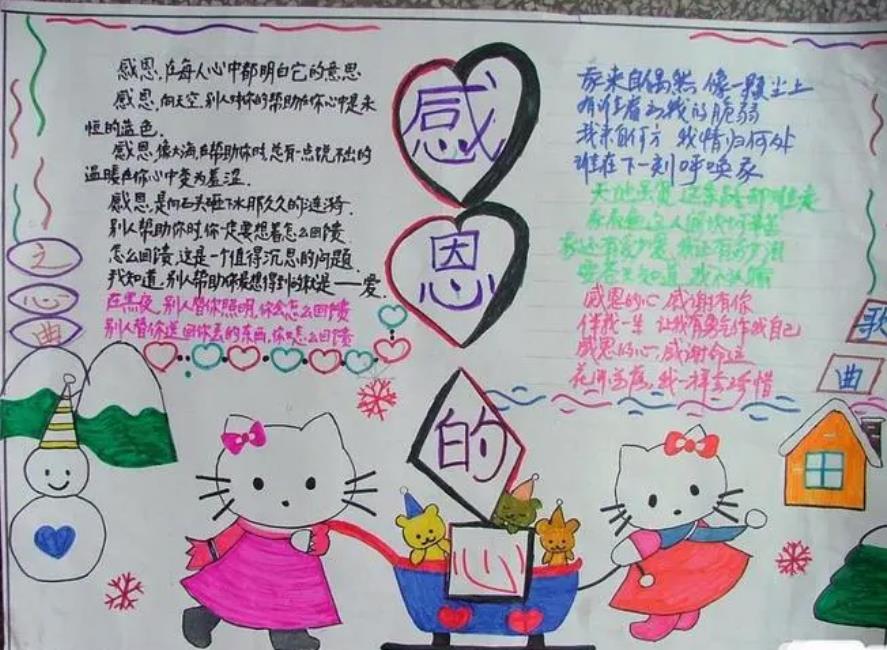 感恩的心
之心曲
感恩,在每人心中都明白它的意思
感恩,向天空,别人对你的帮助在你心中是永
恒的蓝色.
感恩,像大海,在帮助你时,总有一点说不出的
温暖在你心中变为羞涩.
感恩,是向石头砸下水那久久的涟漪.
别人帮助你时,你一定要想着怎么回馈.
怎么回馈,这是一个值得沉思的问题.
我知道,别人帮助你最想得到的就是——爱.
在黑夜,别人替你照明,你会怎么回馈
别人替你送回你丢的东西,你又怎么回馈
歌曲
我来自偶然 像一颗尘土
有谁看出我的脆弱
我来自何方 我情归何处
谁在下一刻呼唤我
天地虽宽 这条路却难走
我看遍这人间坎坷辛苦
我还有多少爱 我还有多少泪
要苍天知道 我不认输
感恩的心 感谢有你
伴我一生 让我有勇气作我自己
感恩的心,感谢命运
花开花落,我一样会珍惜